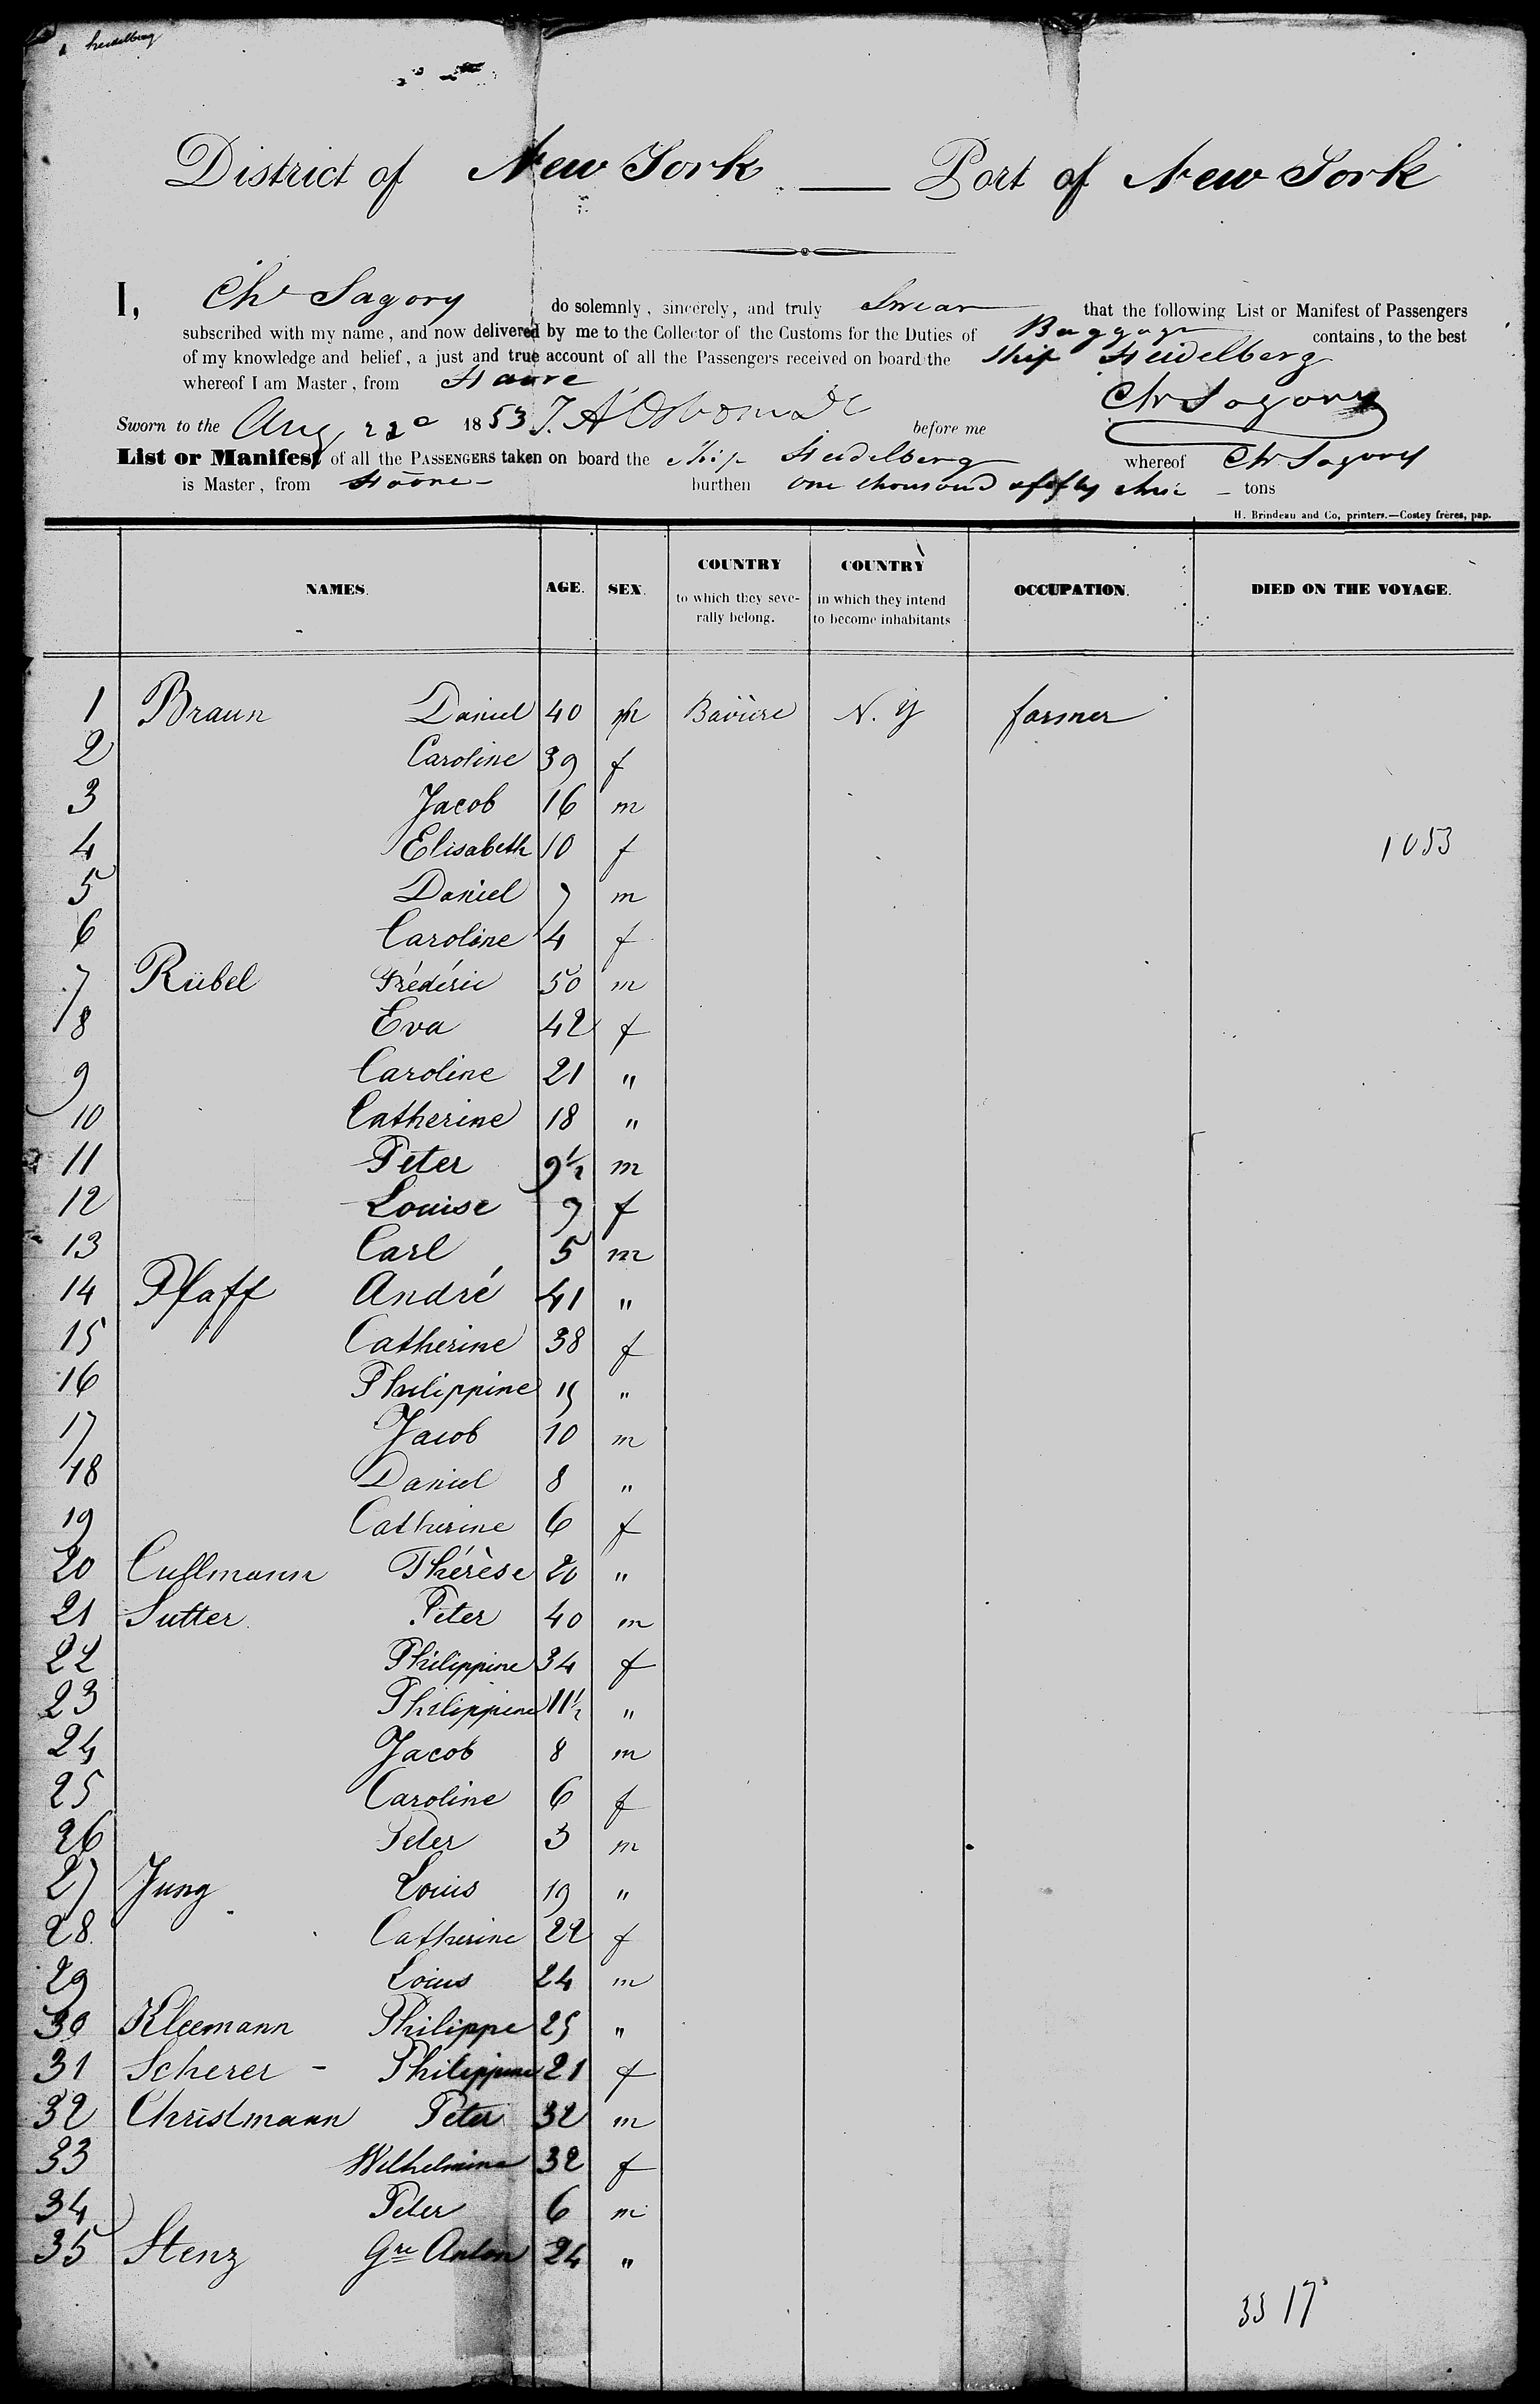 Heidelberg
District of New York — Port of New York
I, Chs Sagory do solemnly, sincerely, and truly Swear that the following List or Manifest of Passengers
subscribed with my name, and now delivered by me to the Collector of the Customs for the Duties of Baggage contains, to the best
of my knowledge and belief, a just and true account of all the Passengers received on board the Ship Heidelberg
whereof I am Master, from Havre
Chs Sagory
Sworn to the Aug 22d 1853 before me
List or Manifest of all the PASSENGERS taken on board the Ship Heidelberg whereof Chs Sagory
is Master, from Havre burthen one thousand & fifty three tons
H. Brindeau and Co, printers.—Costey frères, pap.
NAMES. AGE. SEX. COUNTRY to which they severally belong. COUNTRY in which they intend to become inhabitants OCCUPATION. DIED ON THE VOYAGE.
1 Braun Daniel 40 m Bavière N. Y farmer
2 Caroline 39 f
3 Jacob 16 m
4 Elisabeth 10 f 1053
5 Daniel 7 m
6 Caroline 4 f
7 Rübel Frédéric 50 m
8 Eva 42 f
9 Caroline 21 "
10 Catherine 18 "
11 Peter 9½ m
12 Louise 9 f
13 Carl 5 m
14 Pfaff André 41 "
15 Catherine 38 f
16 Philippine 15 "
17 Jacob 10 m
18 Daniel 8 "
19 Catherine 6 f
20 Cullmann Thérèse 20 "
21 Sutter Peter 40 m
22 Philippine 34 f
23 Philippine 11½ "
24 Jacob 8 m
25 Caroline 6 f
26 Peter 3 m
27 Jung Louis 19 "
28 Catherine 22 f
29 Louis 24 m
30 Kleemann Philippe 25 "
31 Scherer - Philippine 21 f
32 Christmann Peter 32 m
33 Wilhelmine 32 f
34 Peter 6 m
35 Stenz Gre Anton 24 "
33 17